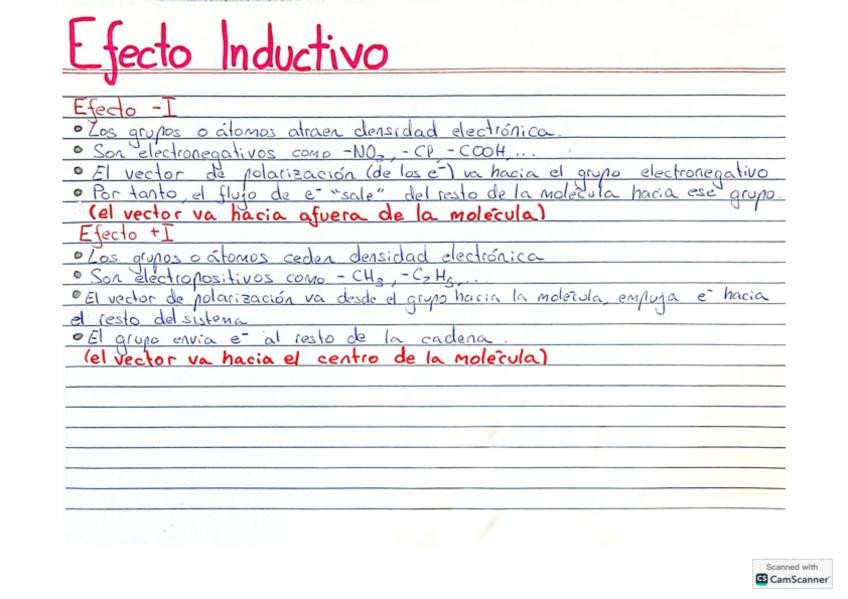 Efecto Inductivo
Efecto -I
• Los grupos o átomos atraen densidad electrónica.
• Son electronegativos como -NO₂, -Cl, -COOH,...
• El vector de polarización (de los e⁻) va hacia el grupo electronegativo
• Por tanto, el flujo de e⁻ "sale" del resto de la molécula hacia ese grupo.
(el vector va hacia afuera de la molécula)
Efecto +I
• Los grupos o átomos ceden densidad electrónica
• Son electropositivos como -CH₃, -C₂H₅,...
• El vector de polarización va desde el grupo hacia la molécula, empuja e⁻ hacia
el resto del sistema
• El grupo envía e⁻ al resto de la cadena.
(el vector va hacia el centro de la molécula)
Scanned with
CS CamScanner